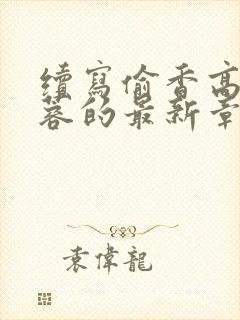 續寫偷香高
蓉的最新章
袁偉龍